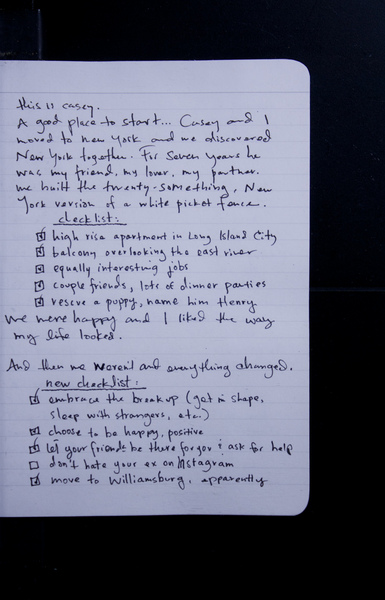 this is casey.
A good place to start... Casey and I
moved to new york and we discovered
New York together. For seven years he
was my friend, my lover, my partner.
we built the twenty-something, New
York version of a white picket fence.
checklist:
☑ high rise apartment in Long Island City
☑ balcony overlooking the east river
☑ equally interesting jobs
☑ couple friends, lots of dinner parties
☑ rescue a puppy, name him Henry
We were happy and I liked the way
my life looked.
And then we weren't and everything changed.
new checklist:
☑ embrace the breakup (get in shape,
sleep with strangers, etc.)
☑ choose to be happy, positive
☑ let your friends be there for you & ask for help
☐ don't hate your ex on Instagram
☑ move to Williamsburg, apparently